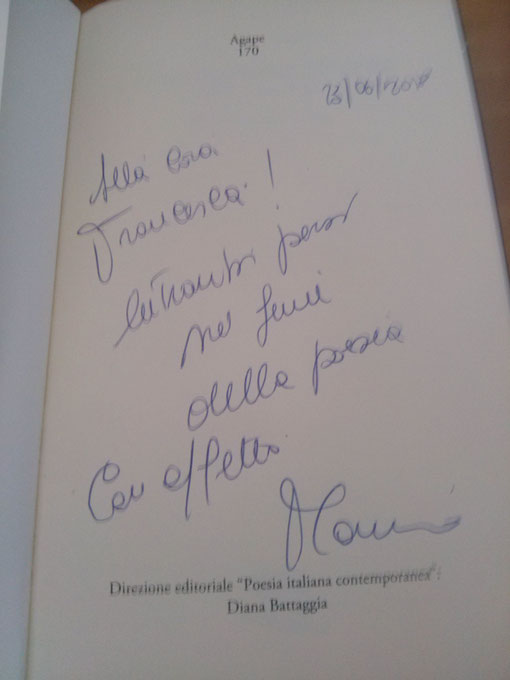 Agape
170
Alla cara
Francesca!
entrambi persi
nei fumi
della poesia
Con affetto
Direzione editoriale "Poesia italiana contemporanea":
Diana Battaggia